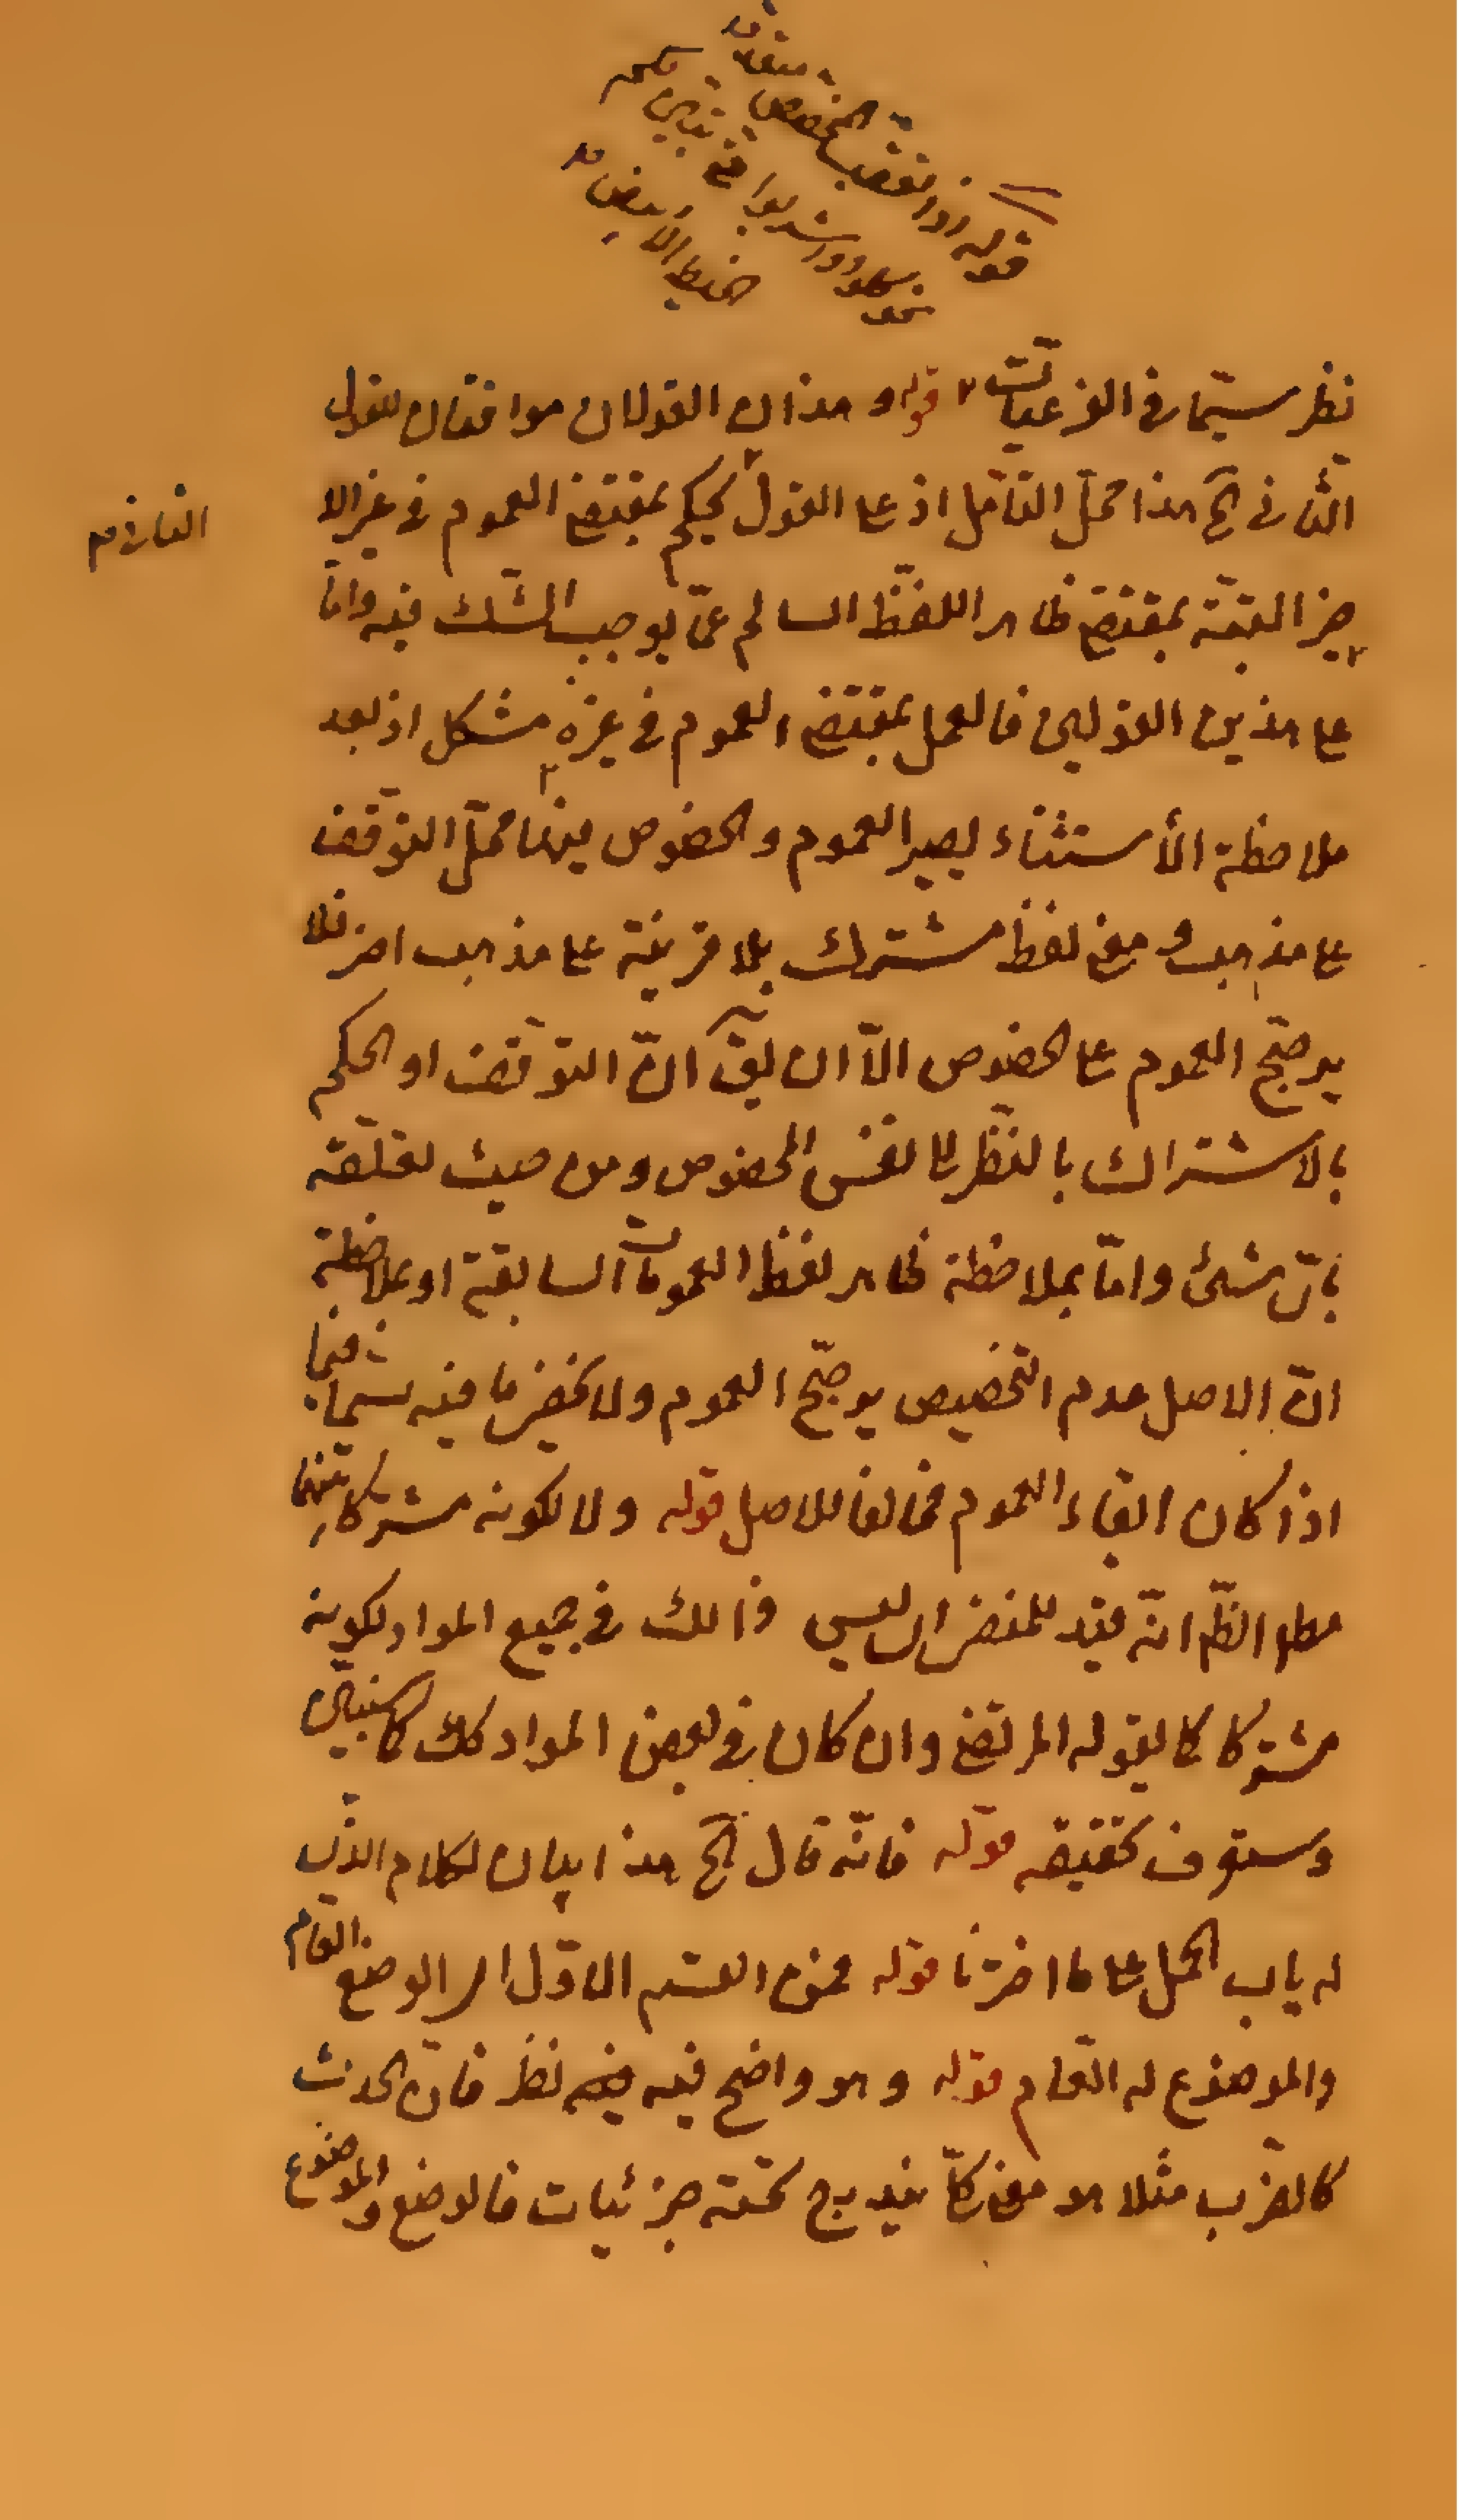 قوله اذا تعقب المخصص متعددا
نحو كلوا واشربوا حتى يتبين لكم
الخيط الأبيض
نظر سيّما في الفرعيات قوله وهذان القولان موافقان للقول
الثّانى الخ هذا محلّ التامّل اذ على القول يحكم بمقتضى العموم في غير الا
الثانى صح
خيرالبتّة بمقتضى ظاهر اللفظ السالم عمّا يوجب الشّك فيه وامّا
على هذين القولين فالعمل بمقتضى العموم في غيره مشكل اذ بعد
ملاحظة الأستثناء يصير العموم والخصوص فيها محلّ التوقّف
على مذهب ومعنى لفظ مشترك بلا قرينة على مذهب اخر فلا
يرجّح العموم على الخصوص الّا ان يقّ انّ التوقّف او الحكم
بالاشتراك بالنّظر الى نفس المخصص ومن حيث تعلّقه
باىّ شئ وامّا بملاحظة ظاهر لفظ العمومات السابقة او بملاحظة
انّ الاصل عدم التخصيص يرجّح العموم ولا يخفى ما فيه سيّما فيما
اذا كان ابقاء العموم مخالفا للاصل قوله ولا لكونه مشتركا بينهما
مطلقا الظّ انّه قيد للمنفى اى ليس ذالك في جميع المواد لكونه
مشتركا كما يقوله المرتضى وان كان في بعض المواد كك كما سنبيّن
وستعرف تحقيقه قوله فانّه قال الخ هذا بيان لكلام الّذى
له ياب الحمل على ما اخترنا قوله فمن القسم الاوّل اى الوضع العام
والموضوع له العام قوله وهو واضح فيه نظر فانّ الحدث
كالضرب مثلا هو معنى كلّى يندرج تحته جزئيات فالوضع والموضوع